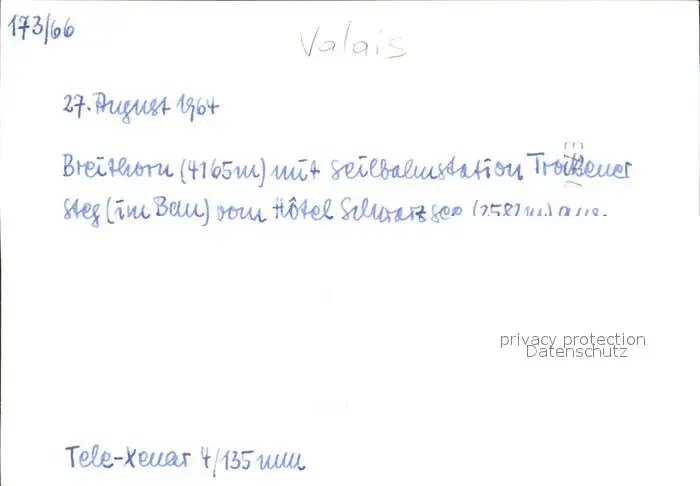 173/66
Valais
27. August 1964
Breithorn (4165m) mit Seilbahnstation Trockener
Steg (im Bau) vom Hôtel Schwarzsee (2582m) aus.
privacy protection
Datenschutz
Tele-Xenar 4/135 mm